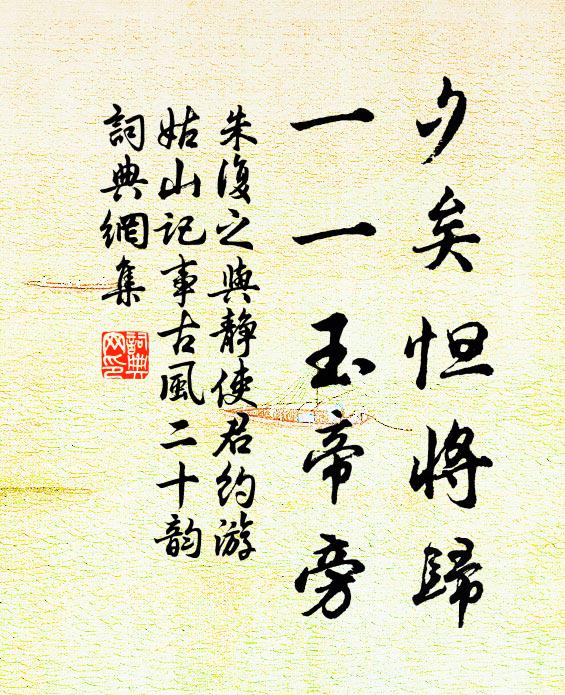 夕矣怛將歸
一一玉帝旁
朱復之與靜使君約游
姑山記事古風二十韵
詞典網集
詞典网印